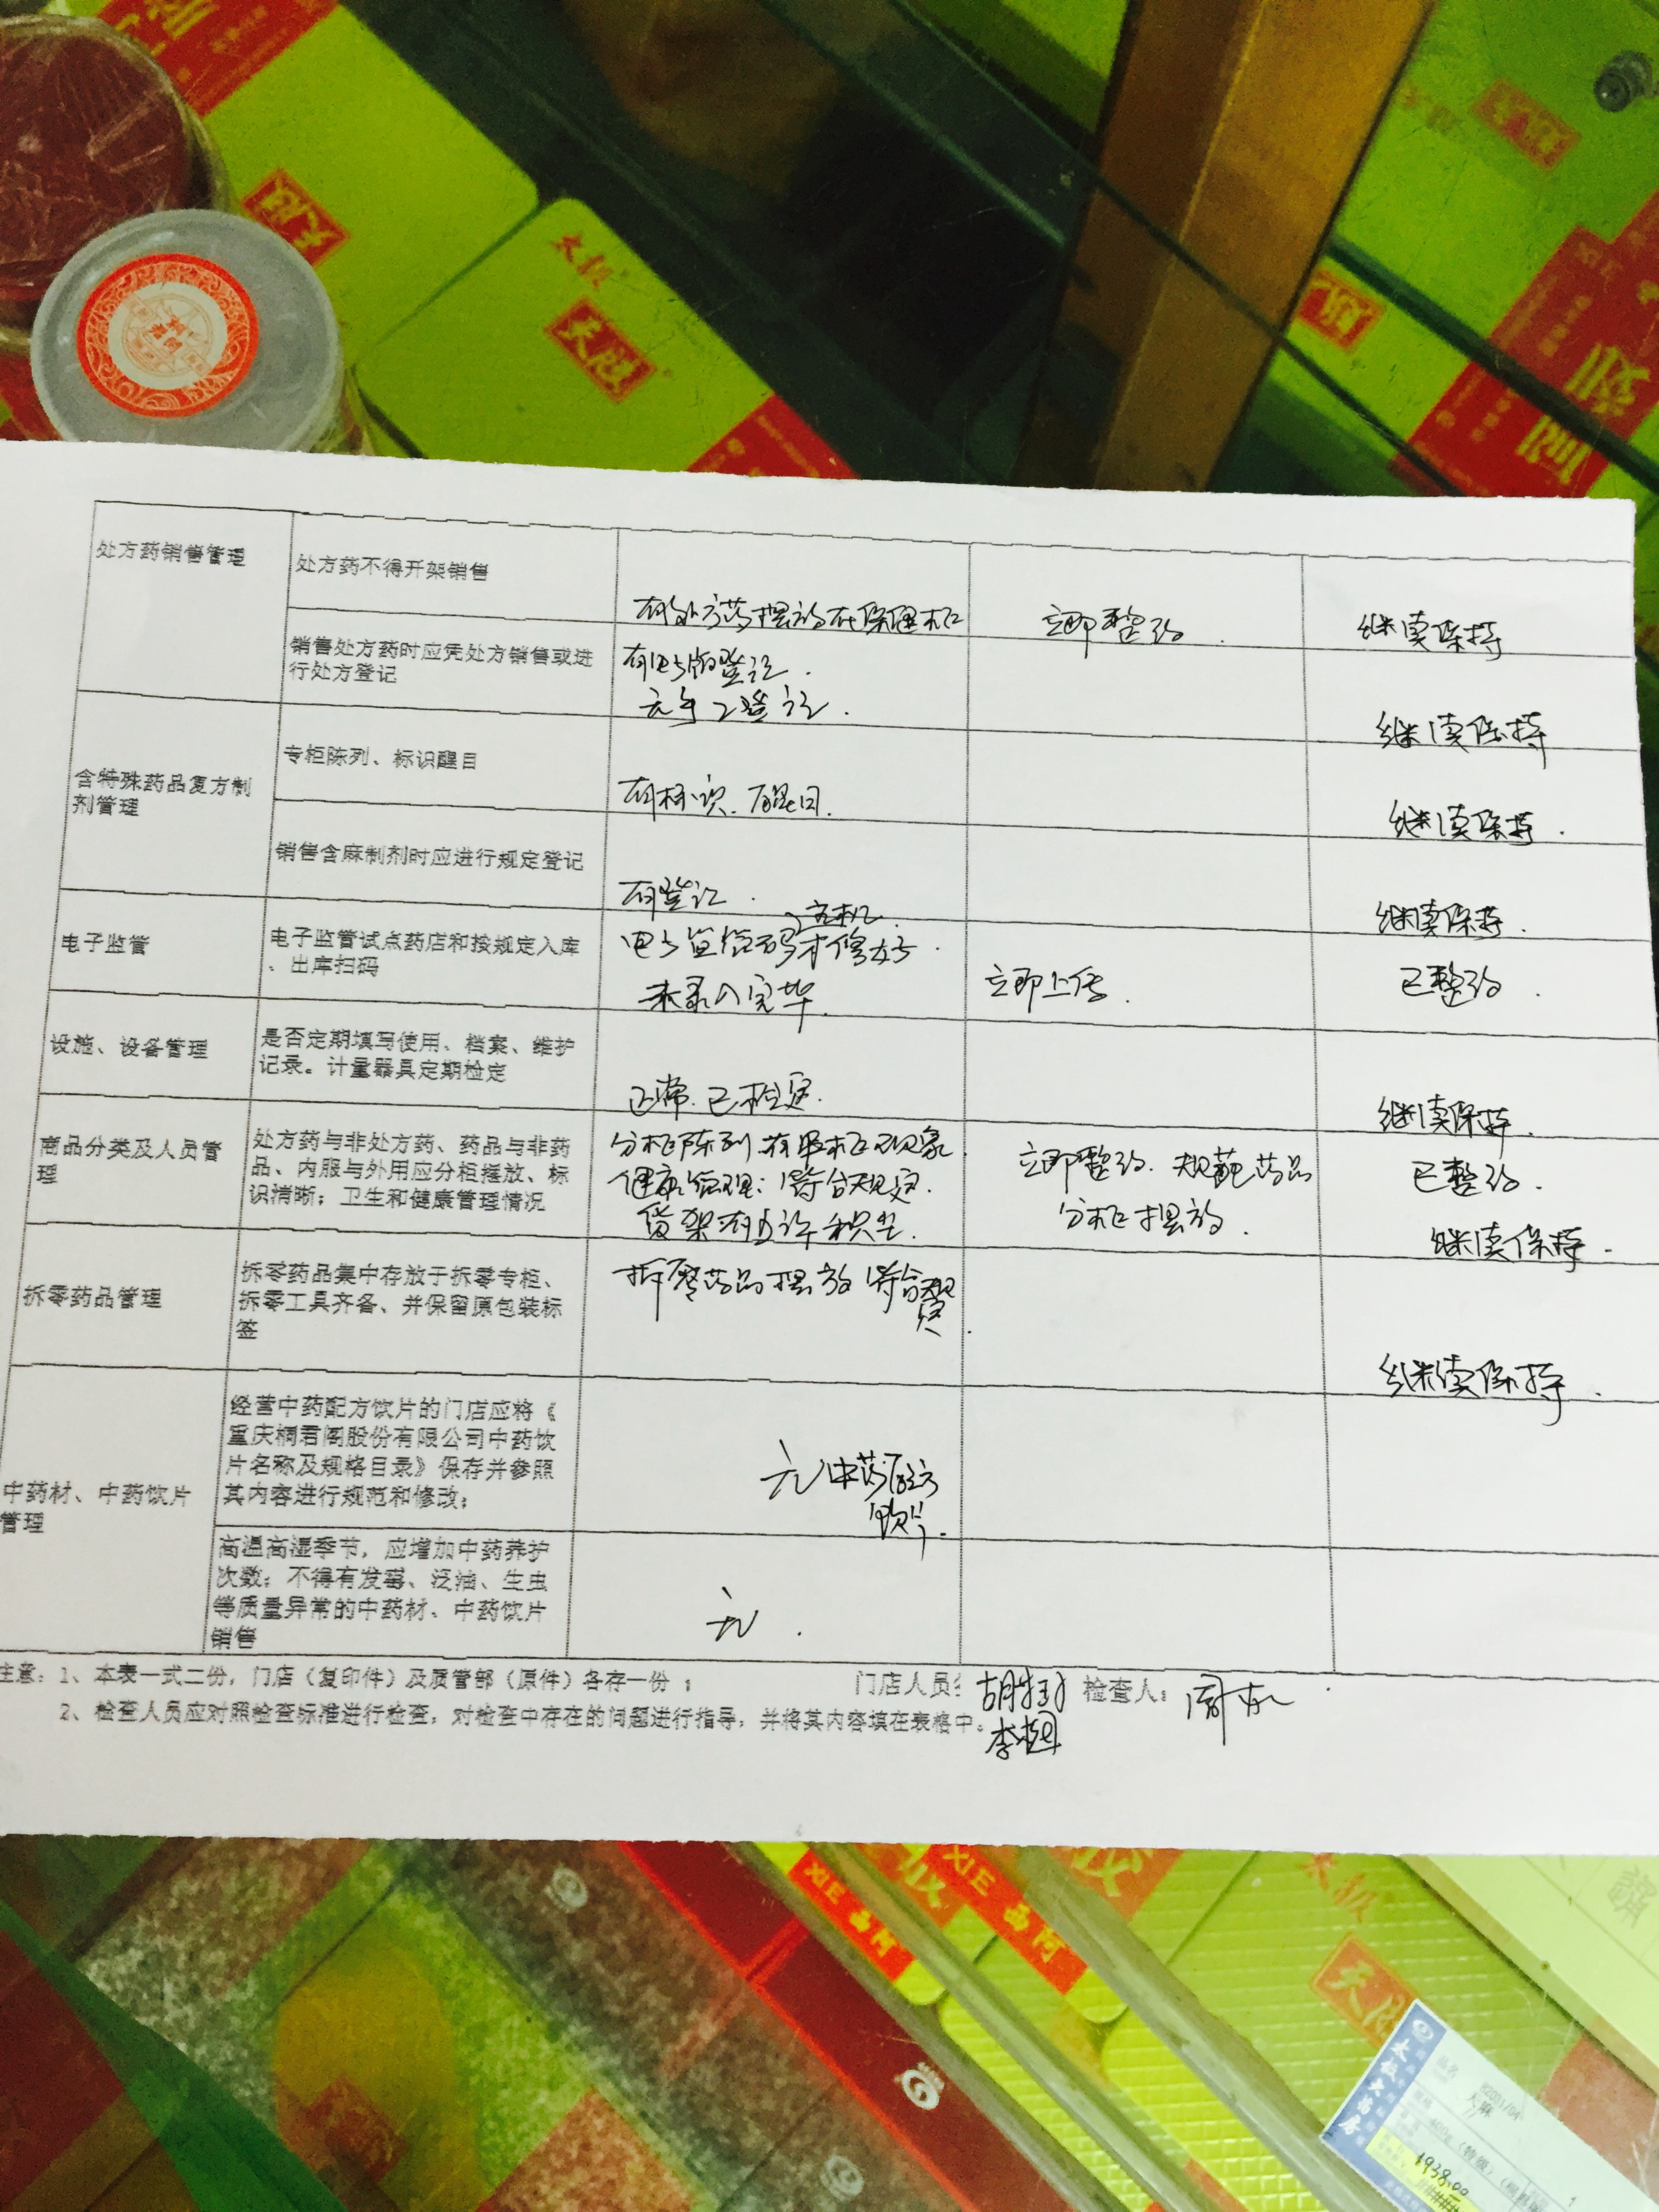 太极
天胶
天胶
处方药销售管理
处方药不得开架销售
有处方药摆放在保健柜
立即整改.
继续保持
销售处方药时应凭处方销售或进
行处方登记
有电子版登记.
无手工登记.
继续保持
含特殊药品复方制
剂管理
专柜陈列、标识醒目
有标识.醒目.
继续保持.
销售含麻制剂时应进行规定登记
有登记.
继续保持.
电子监管
电子监管试点药店和按规定入库
、出库扫码
主机
电子监管码才修好.
未录入完毕.
立即上传.
已整改.
设施、设备管理
是否定期填写使用、档案、维护
记录。计量器具定期检定
正常.已检定.
继续保持.
商品分类及人员管
理
处方药与非处方药、药品与非药
品、内服与外用应分柜摆放、标
识清晰；卫生和健康管理情况
分柜陈列.有串柜现象.
健康管理：符合规定.
货架有少许积尘.
立即整改.规范药品
分柜摆放.
已整改.
继续保持.
拆零药品管理
拆零药品集中存放于拆零专柜、
拆零工具齐备、并保留原包装标
签
拆零药品摆放符合规
定.
继续保持.
中药材、中药饮片
管理
经营中药配方饮片的门店应将《
重庆桐君阁股份有限公司中药饮
片名称及规格目录》保存并参照
其内容进行规范和修改；
无中药配方
饮片.
高温高湿季节，应增加中药养护
次数；不得有发霉、泛油、生虫
等质量异常的中药材、中药饮片
销售
无.
注意：1、本表一式二份，门店（复印件）及质管部（原件）各存一份；
门店人员:
检查人：
2、检查人员应对照检查标准进行检查，对检查中存在的问题进行指导，并将其内容填在表格中。
XIE
XIE
太极
天胶
太极大药房
品名
天麻
400g（特级）